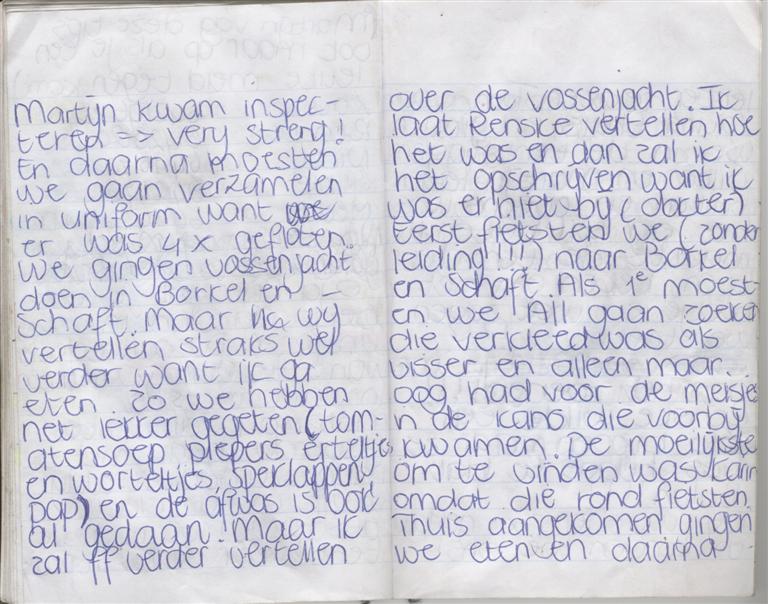 Martijn kwam inspec-
teren => very streng!
En daarna moesten
we gaan verzamelen
in uniform want
er was 4x gefloten.
We gingen vossenjacht
doen in Borkel en -
Schaft. Maar wy
vertellen straks wel
verder want ik ga
eten. Zo we hebben
net lekker gegeten (tom-
atensoep piepers erteltjes
en worteltjes, speklappen
pap) en de afwas is ook
al gedaan. Maar ik
zal ff verder vertellen
over de vossenjacht. Ik
laat Renske vertellen hoe
het was en dan zal ik
het opschrijven want ik
was er niet by (dokter)
Eerst fietsten we (zonder
leiding!!!) naar Borkel
en Schaft. Als 1e moest-
en we All gaan zoeken
die verkleed was als
visser en alleen maar
oog had voor de meisjes
in de kano die voorby
kwamen. De moeilijkste
om te vinden was
omdat die rond fietsten.
Thuis aangekomen gingen
we eten en daarna